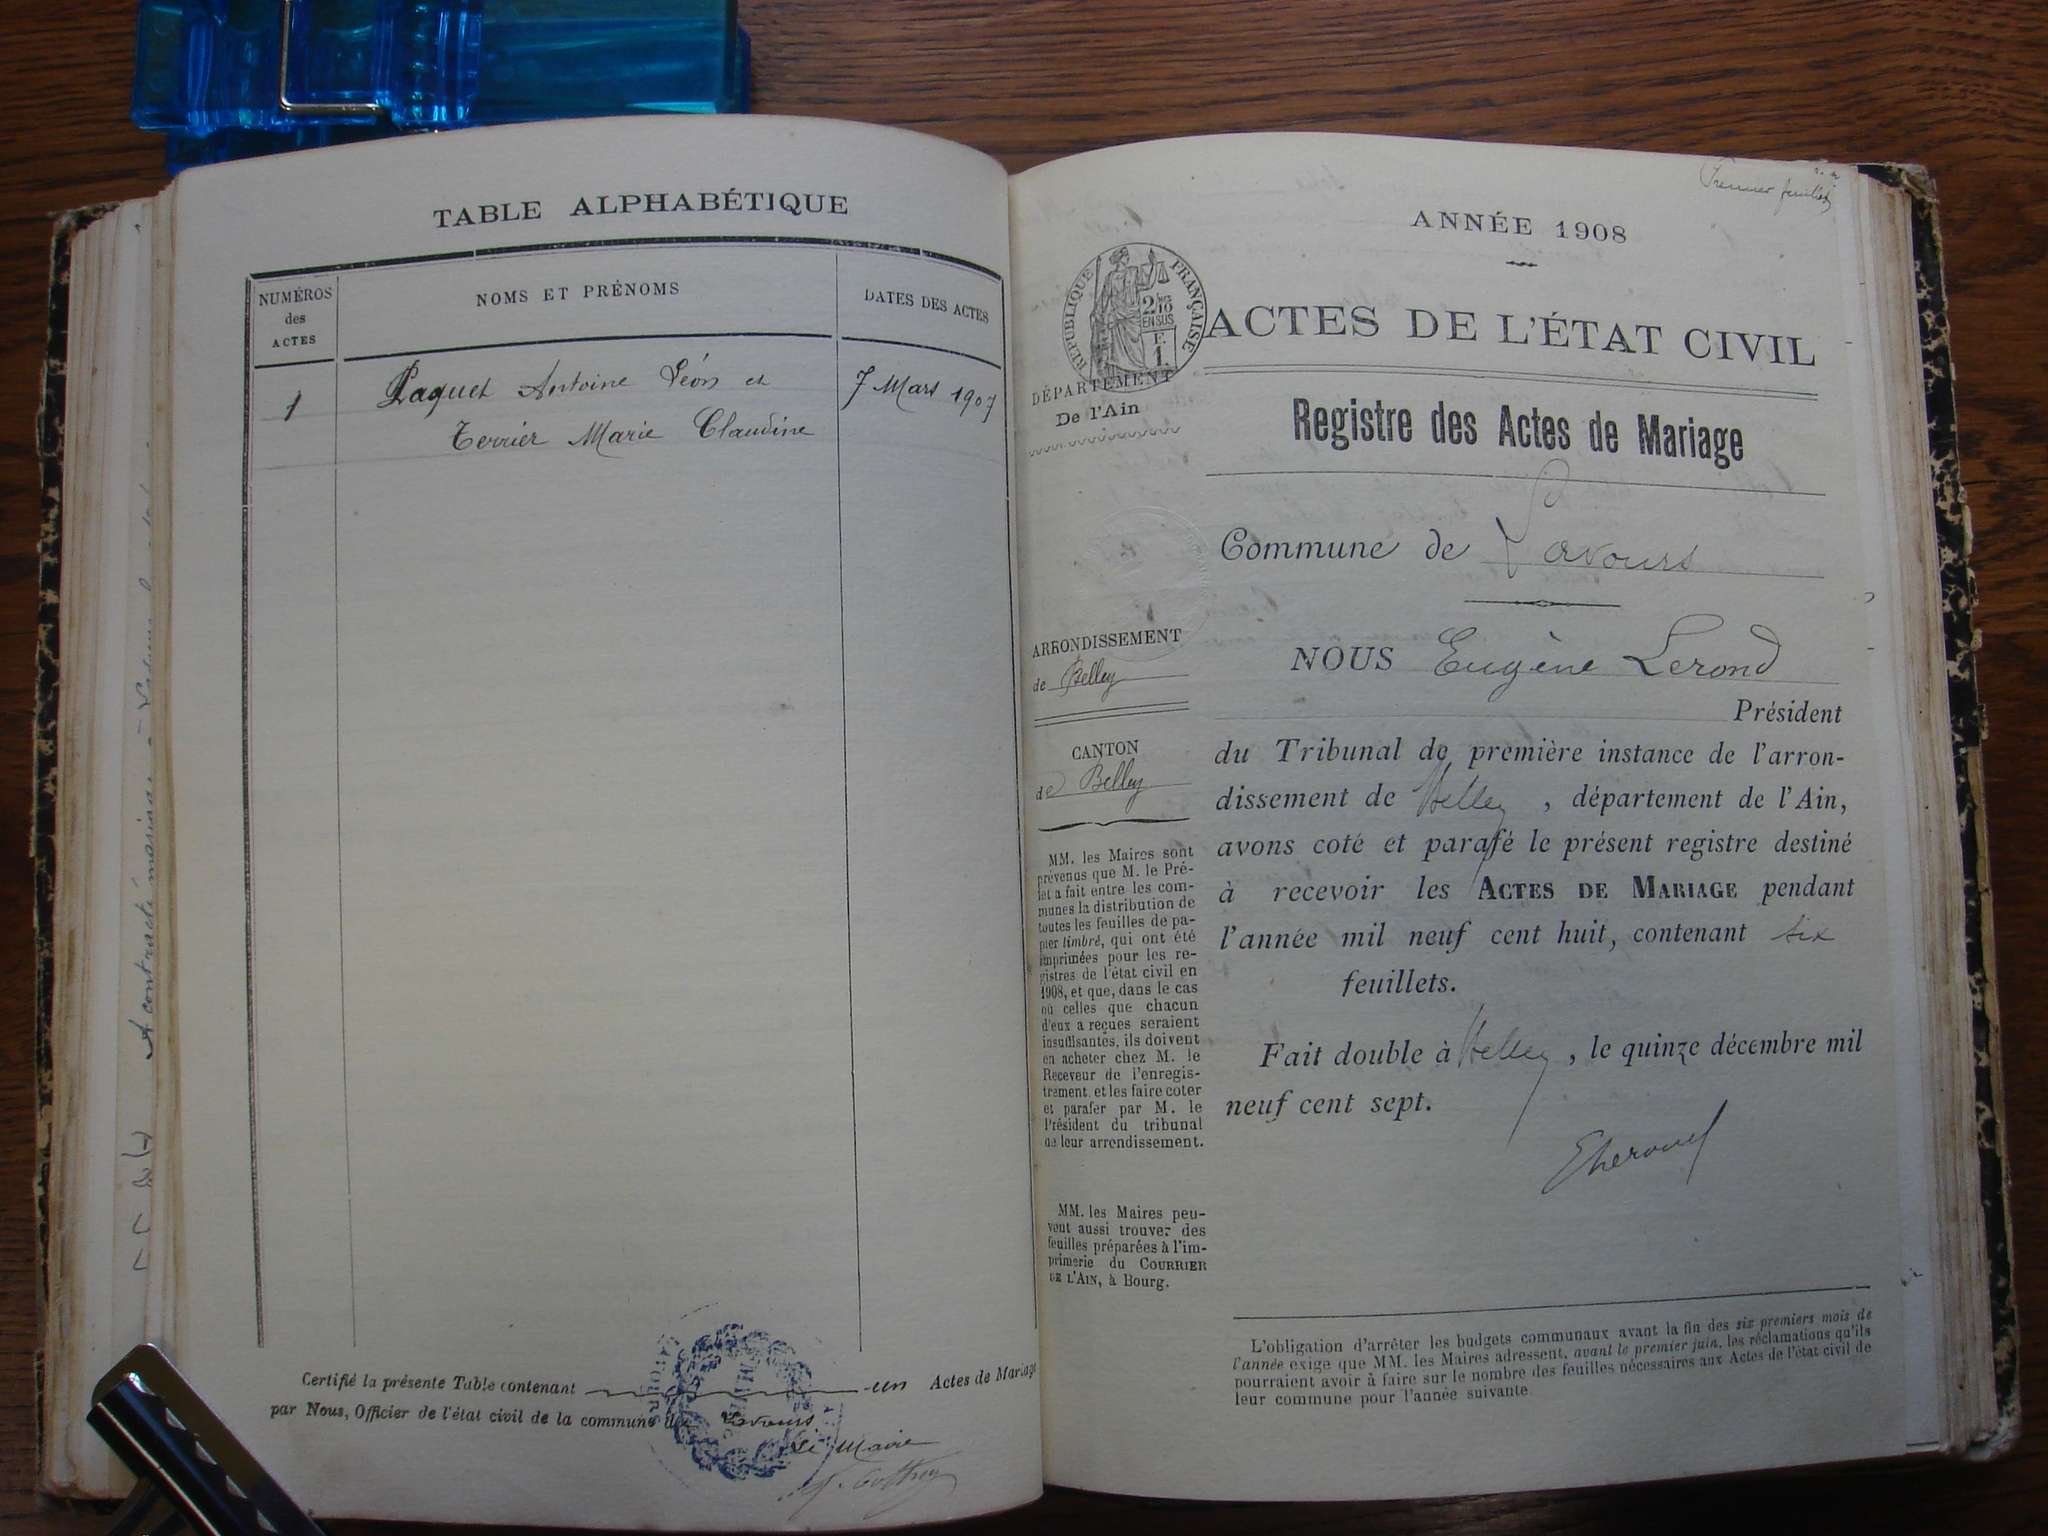 TABLE ALPHABÉTIQUE
NUMÉROS
des
ACTES
NOMS ET PRÉNOMS
DATES DES ACTES
1
Paquet Antoine Léon et
7 Mars 1907
Terrier Marie Claudine
Certifié la présente Table contenant un Actes de Mariage
par Nous, Officier de l'état civil de la commune de Lavours
Le Maire
A contracté mariage à
Premier feuillet
ANNÉE 1908
RÉPUBLIQUE FRANÇAISE
2/10
EN SUS
F.
1.
ACTES DE L'ÉTAT CIVIL
DÉPARTEMENT
De l'Ain
Registre des Actes de Mariage
Commune de Lavours
ARRONDISSEMENT
de Belley
CANTON
de Belley
MM. les Maires sont
prévenus que M. le Pré-
fet a fait entre les com-
munes la distribution de
toutes les feuilles de pa-
pier timbré, qui ont été
imprimées pour les re-
gistres de l'état civil en
1908, et que, dans le cas
où celles que chacun
d'eux a reçues seraient
insuffisantes, ils doivent
en acheter chez M. le
Receveur de l'enregis-
trement, et les faire coter
et parafer par M. le
Président du tribunal
de leur arrondissement.
MM. les Maires peu-
vent aussi trouver des
feuilles préparées à l'im-
primerie du COURRIER
DE L'AIN, à Bourg.
NOUS Eugène Lerond
Président
du Tribunal de première instance de l'arron-
dissement de Belley, département de l'Ain,
avons coté et parafé le présent registre destiné
à recevoir les ACTES DE MARIAGE pendant
l'année mil neuf cent huit, contenant six
feuillets.
Fait double à Belley, le quinze décembre mil
neuf cent sept.
L'obligation d'arrêter les budgets communaux avant la fin des six premiers mois de
l'année exige que MM. les Maires adressent, avant le premier juin, les réclamations qu'ils
pourraient avoir à faire sur le nombre des feuilles nécessaires aux Actes de l'état civil de
leur commune pour l'année suivante